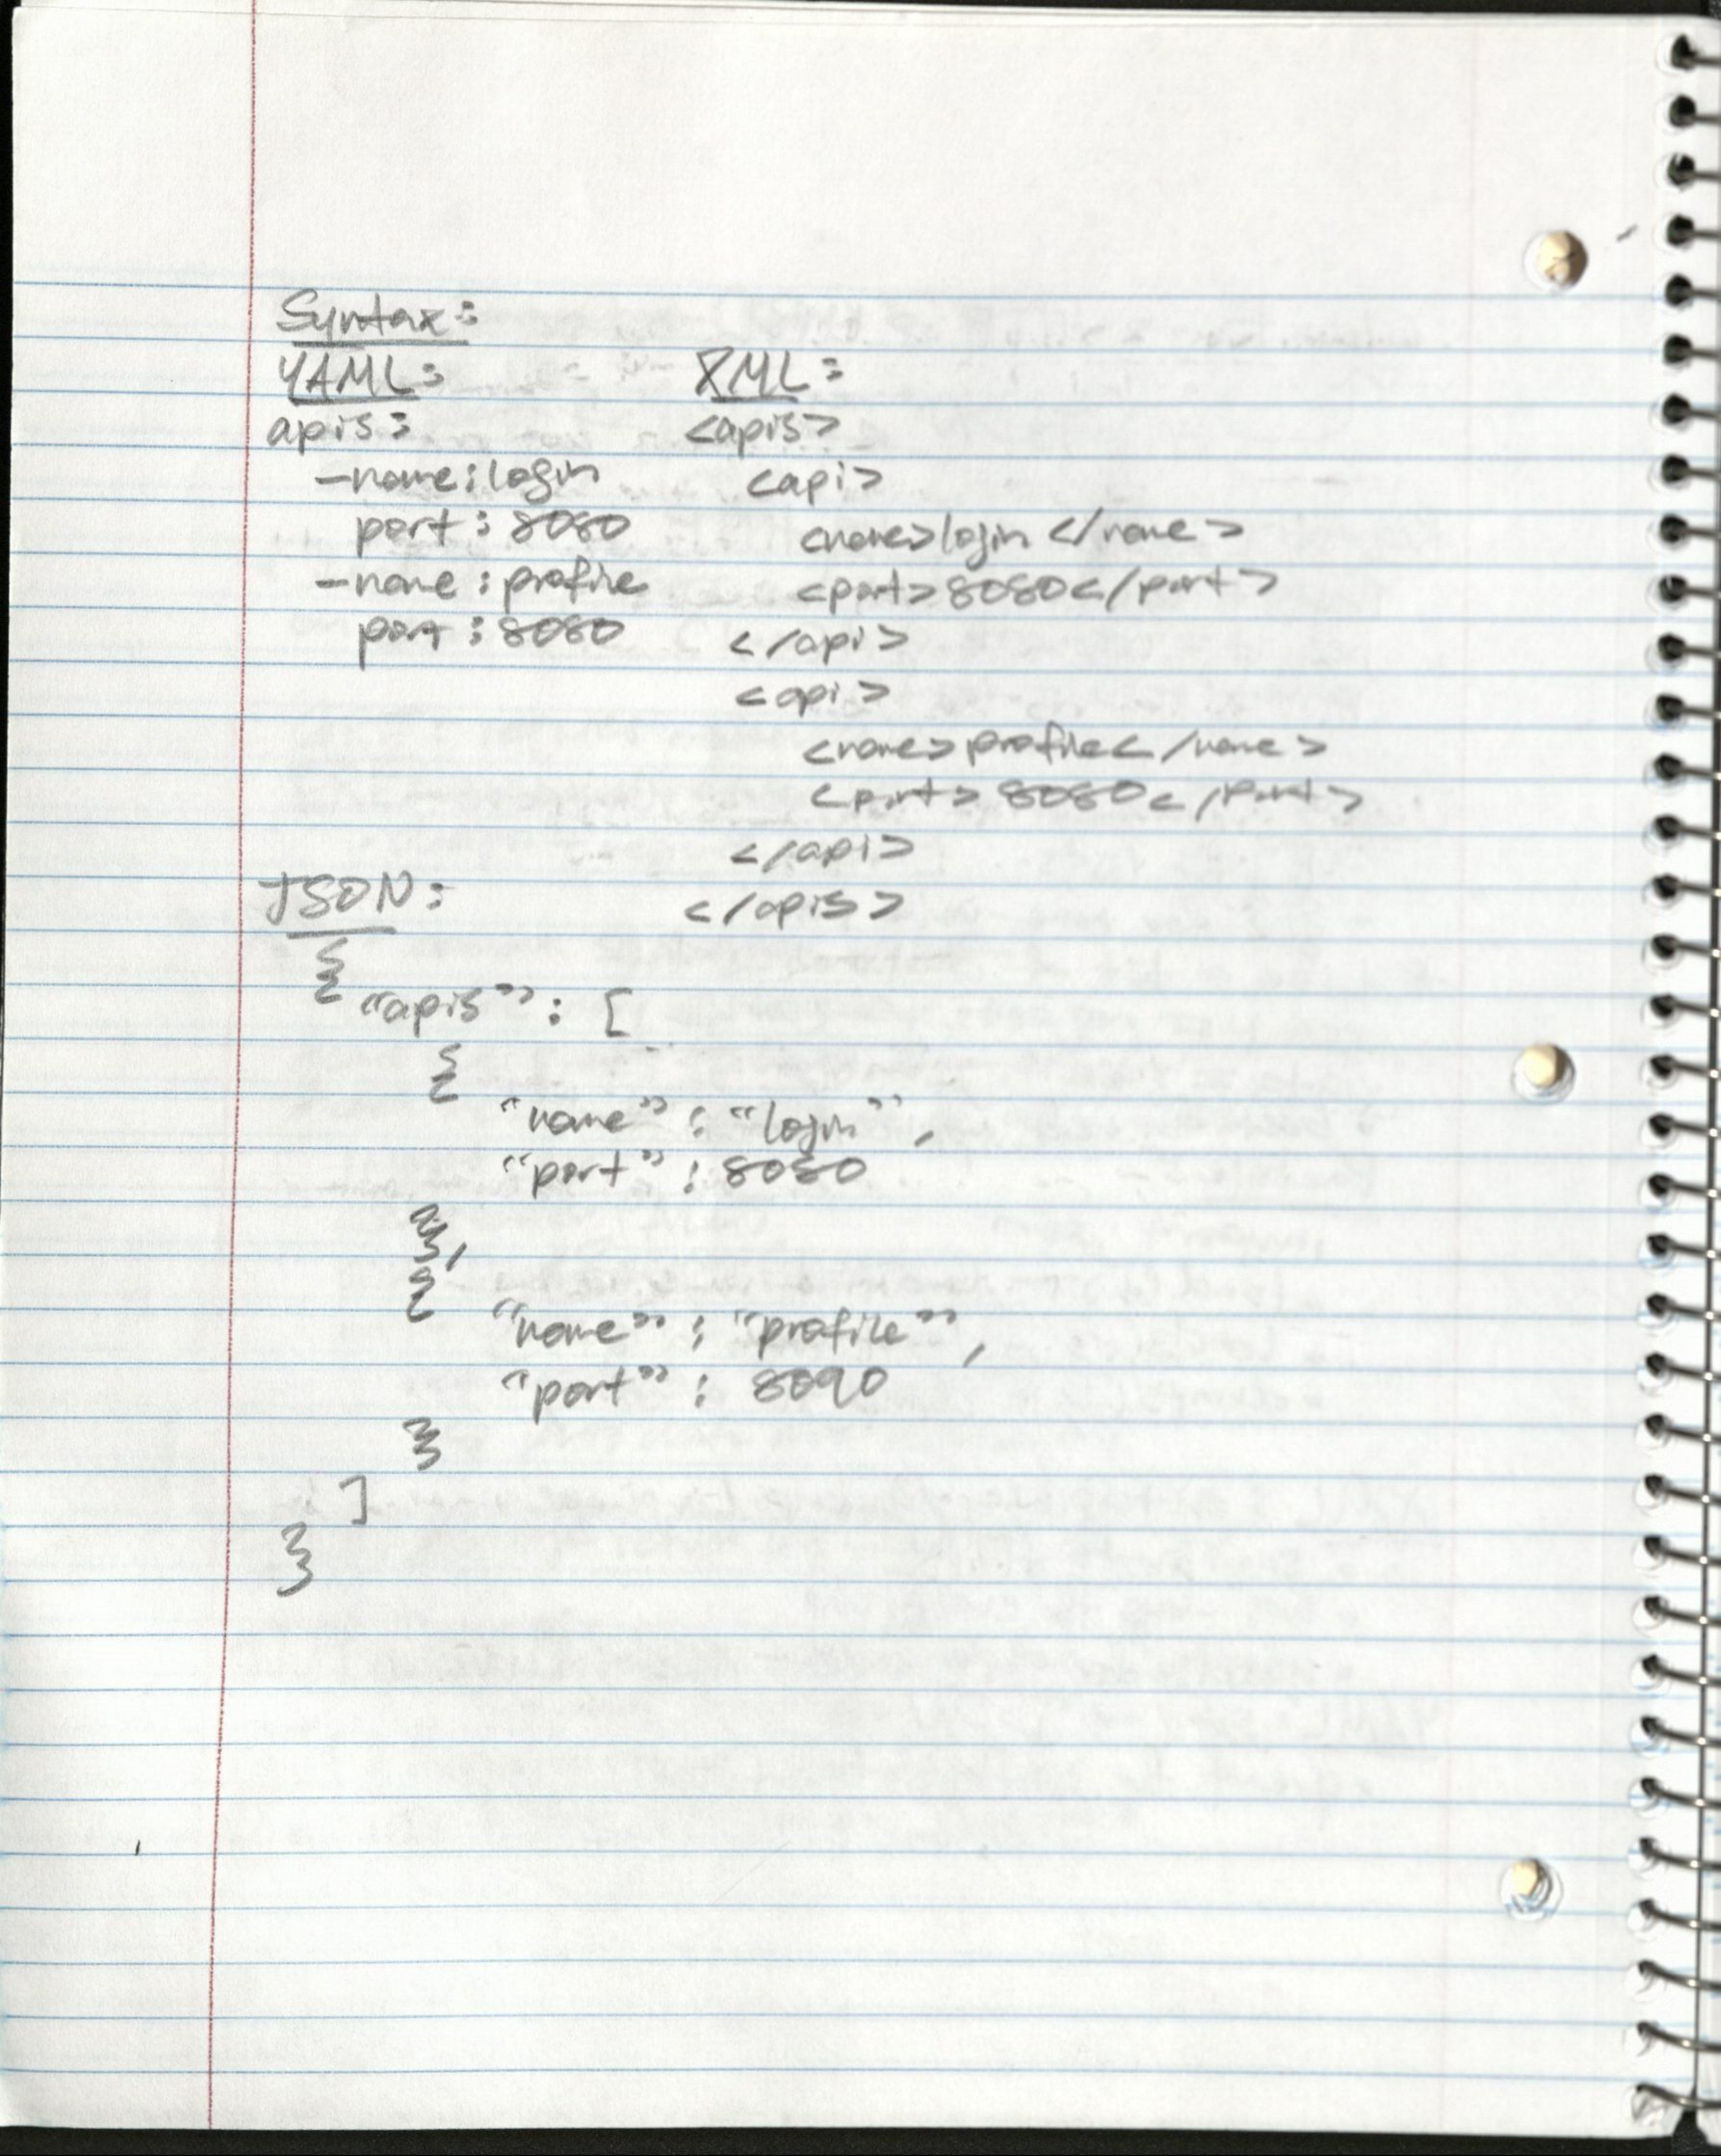 Syntax:
YAML:
apis:
-name: login
port: 8080
-name: profile
port: 8080
XML:
<apis>
<api>
<name>login</name>
<port>8080</port>
</api>
<api>
<name>profile</name>
<port>8080</port>
</api>
</apis>
JSON:
{
"apis": [
{
"name": "login",
"port": 8080
},
{
"name": "profile",
"port": 8090
}
]
}